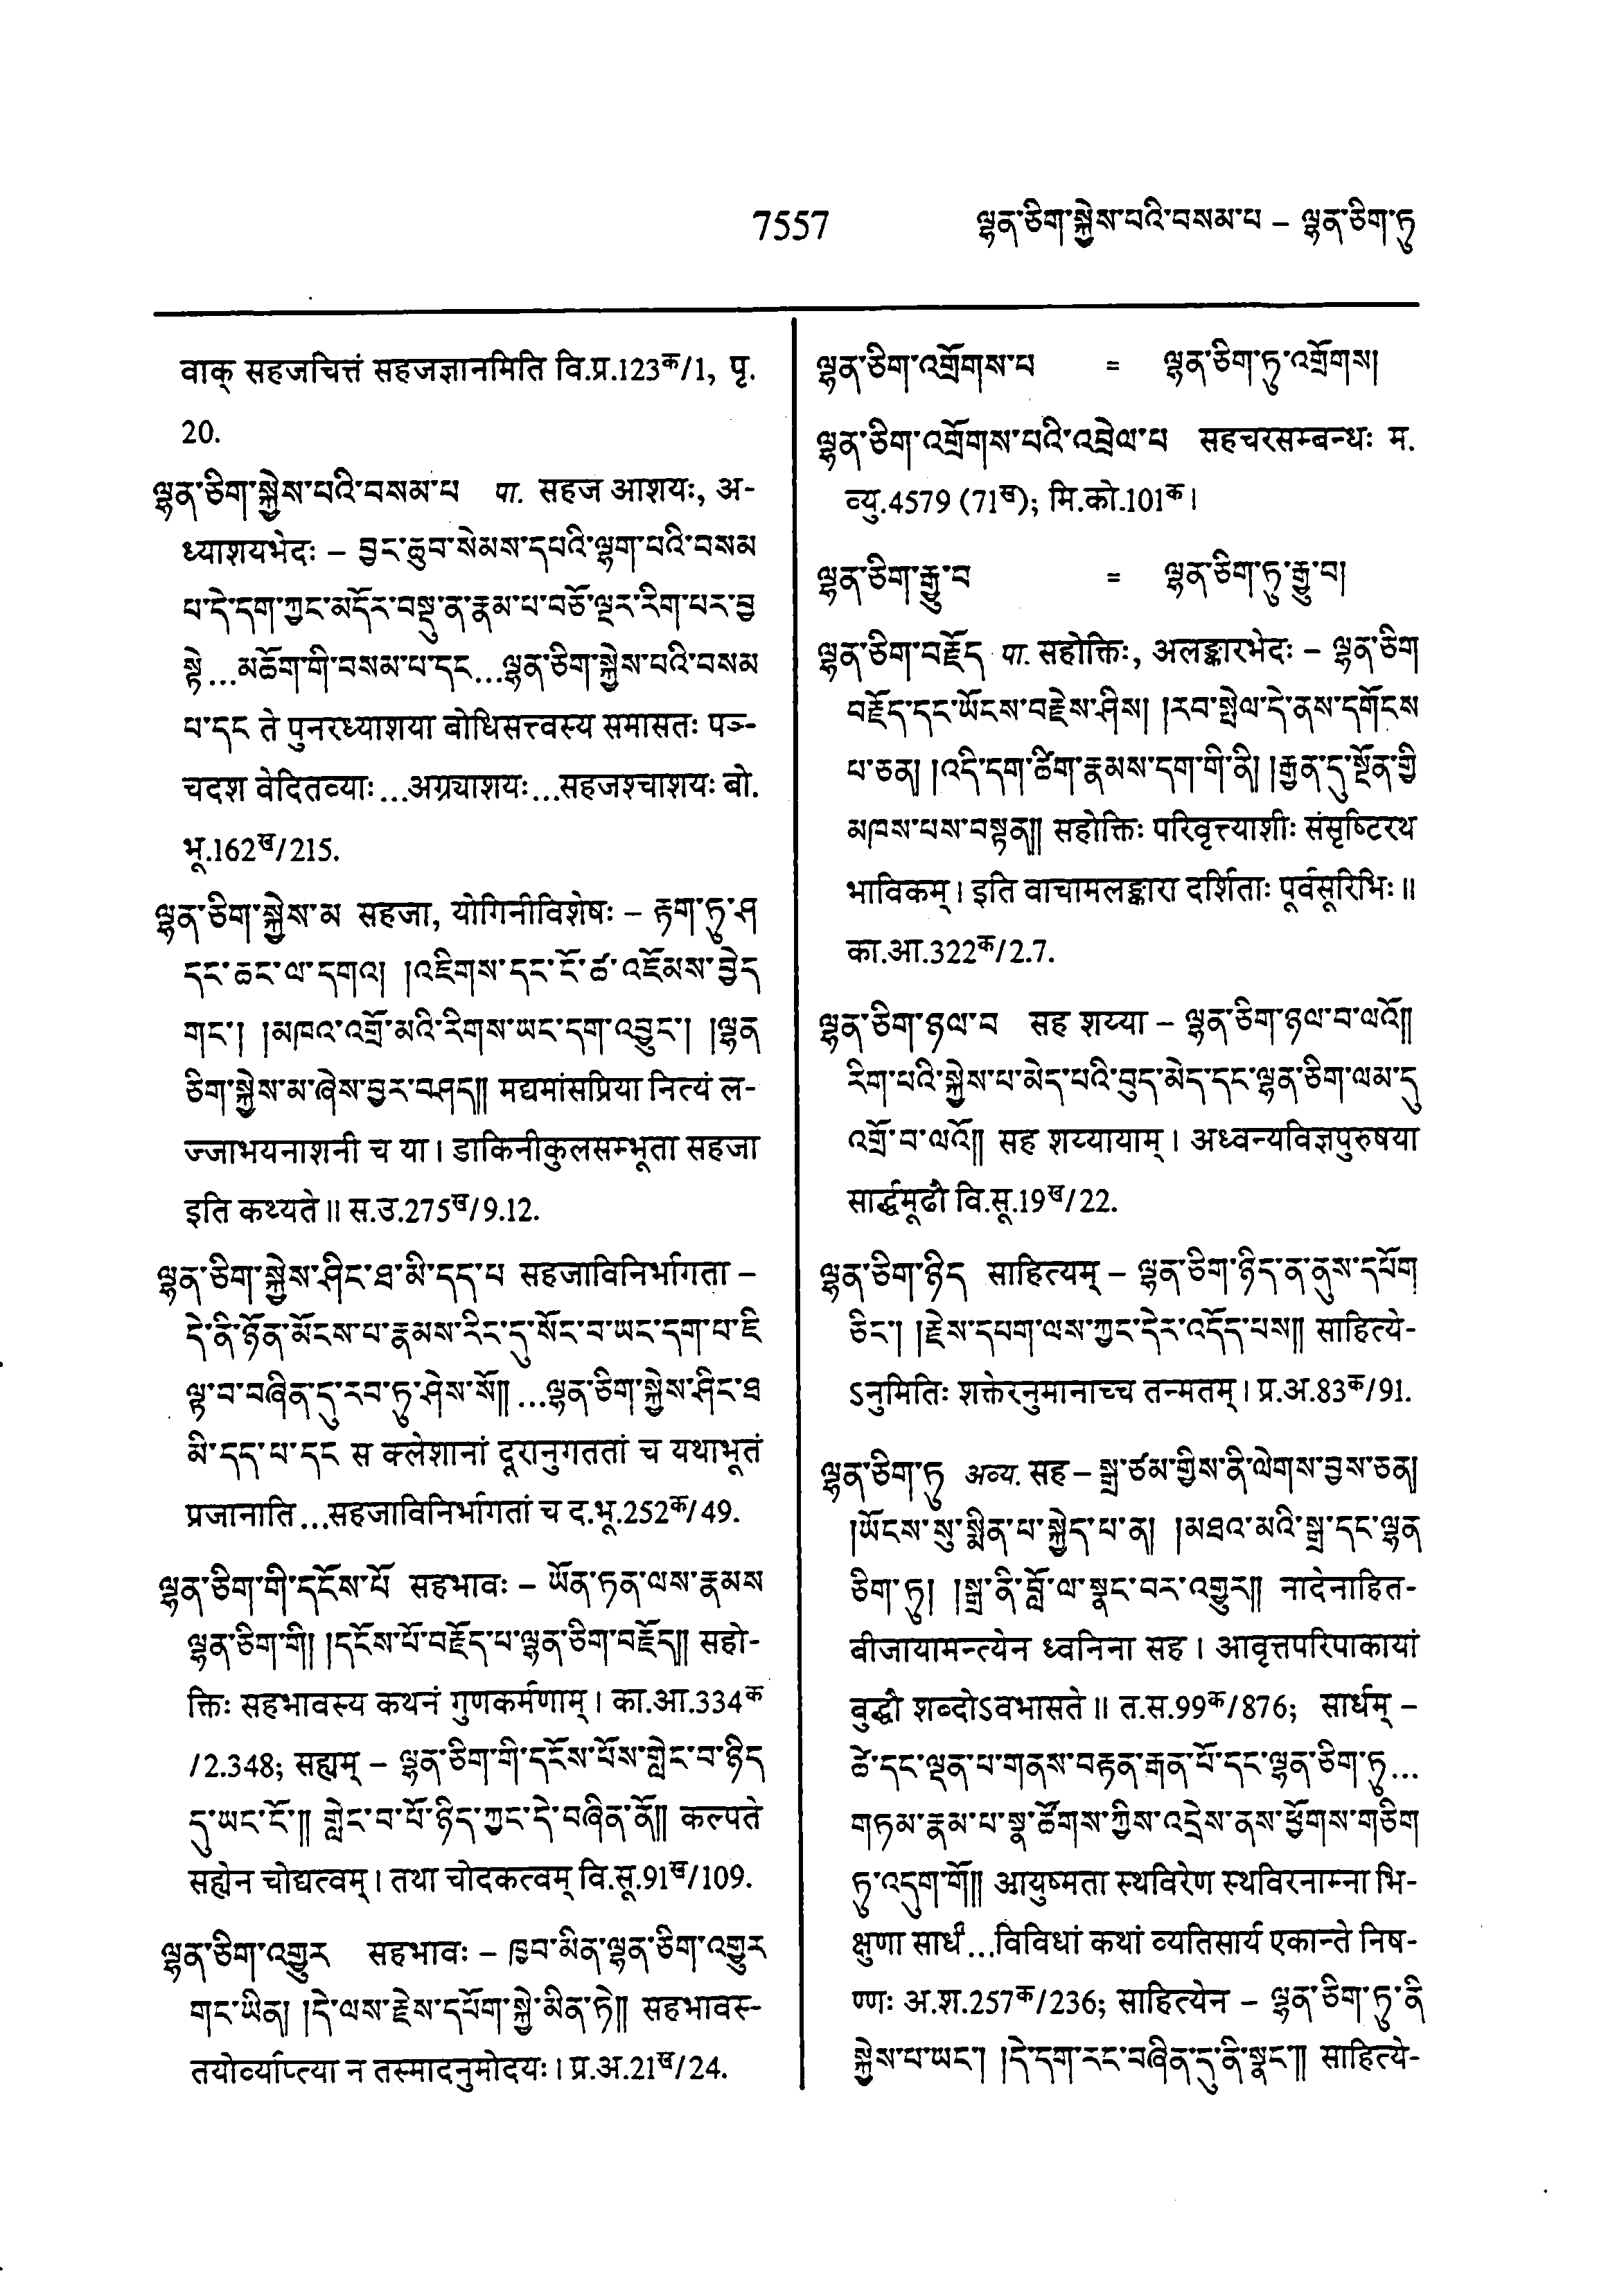 7557 ལྷན་ཅིག་སྐྱེས་པའི་བསམ་པ – ལྷན་ཅིག་ཏུ
वाक् सहजचित्तं सहजज्ञानमिति वि.प्र.123क/1, पृ.
20.
ལྷན་ཅིག་སྐྱེས་པའི་བསམ་པ पा. सहज आशयः, अ-
ध्याशयभेदः – བྱང་ཆུབ་སེམས་དཔའི་ལྷག་པའི་བསམ
པ་དེ་དག་ཀྱང་མདོར་བསྡུ་ན་རྣམ་པ་བཅོ་ལྔར་རིག་པར་བྱ
སྟེ...མཆོག་གི་བསམ་པ་དང...ལྷན་ཅིག་སྐྱེས་པའི་བསམ
པ་དང ते पुनरध्याशया बोधिसत्त्वस्य समासतः पञ्-
चदश वेदितव्याः...अग्र्याशयः...सहजश्चाशयः बो.
भू.162ख/215.
ལྷན་ཅིག་སྐྱེས་མ सहजा, योगिनीविशेषः – རྟག་ཏུ་ཤ
དང་ཆང་ལ་དགའ། །འཇིགས་དང་ངོ་ཚ་འཇོམས་བྱེད
གང་། །མཁའ་འགྲོ་མའི་རིགས་ཡང་དག་འབྱུང་། །ལྷན
ཅིག་སྐྱེས་མ་ཞེས་བྱར་བཤད།། मद्यमांसप्रिया नित्यं ल-
ज्जाभयनाशनी च या। डाकिनीकुलसम्भूता सहजा
इति कथ्यते॥ स.उ.275ख/9.12.
ལྷན་ཅིག་སྐྱེས་ཤིང་ཐ་མི་དད་པ सहजाविनिर्भागता –
དེ་ནི་ཉོན་མོངས་པ་རྣམས་རིང་དུ་སོང་བ་ཡང་དག་པ་ཇི
ལྟ་བ་བཞིན་དུ་རབ་ཏུ་ཤེས་སོ།། ...ལྷན་ཅིག་སྐྱེས་ཤིང་ཐ
མི་དད་པ་དང स क्लेशानां दूरानुगततां च यथाभूतं
प्रजानाति...सहजाविनिर्भागतां च द.भू.252क/49.
ལྷན་ཅིག་གི་དངོས་པོ सहभावः – ཡོན་ཏན་ལས་རྣམས
ལྷན་ཅིག་གི། །དངོས་པོ་བརྗོད་པ་ལྷན་ཅིག་བརྗོད།། सहो-
क्तिः सहभावस्य कथनं गुणकर्मणाम्। का.आ.334क
/2.348; सह्यम् – ལྷན་ཅིག་གི་དངོས་པོས་གླེང་བ་ཉིད
དུ་ཡང་ངོ་།། གླེང་བ་པོ་ཉིད་ཀྱང་དེ་བཞིན་ནོ།། कल्पते
सह्येन चोद्यत्वम्। तथा चोदकत्वम् वि.सू.91ख/109.
ལྷན་ཅིག་འགྱུར सहभावः – ཁྱབ་མིན་ལྷན་ཅིག་འགྱུར
གང་ཡིན། །དེ་ལས་རྗེས་དཔོག་སྐྱེ་མིན་ཏེ།། सहभावस्-
तयोर्व्याप्त्या न तस्मादनुमोदयः। प्र.अ.21ख/24.
ལྷན་ཅིག་འགྲོགས་པ = ལྷན་ཅིག་ཏུ་འགྲོགས།
ལྷན་ཅིག་འགྲོགས་པའི་འབྲེལ་པ सहचरसम्बन्धः म.
व्यु.4579 (71ख); मि.को.101क।
ལྷན་ཅིག་རྒྱུ་བ = ལྷན་ཅིག་ཏུ་རྒྱུ་བ།
ལྷན་ཅིག་བརྗོད पा. सहोक्तिः, अलङ्कारभेदः – ལྷན་ཅིག
བརྗོད་དང་ཡོངས་བརྗེས་ཤིས། །རབ་སྤེལ་དེ་ནས་དགོངས
པ་ཅན། །འདི་དག་ཚིག་རྣམས་དག་གི་ནི། །རྒྱན་དུ་སྔོན་གྱི
མཁས་པས་བསྟན།། सहोक्तिः परिवृत्त्याशीः संसृष्टिरथ
भाविकम्। इति वाचामलङ्कारा दर्शिताः पूर्वसूरिभिः॥
का.आ.322क/2.7.
ལྷན་ཅིག་ཉལ་བ सह शय्या – ལྷན་ཅིག་ཉལ་བ་ལའོ།།
རིག་པའི་སྐྱེས་པ་མེད་པའི་བུད་མེད་དང་ལྷན་ཅིག་ལམ་དུ
འགྲོ་བ་ལའོ།། सह शय्यायाम्। अध्वन्यविज्ञपुरुषया
सार्द्धमूढौ वि.सू.19ख/22.
ལྷན་ཅིག་ཉིད साहित्यम् – ལྷན་ཅིག་ཉིད་ན་ནུས་དཔོག
ཅིང་། །རྗེས་དཔག་ལས་ཀྱང་དེར་འདོད་པས།། साहित्ये-
ऽनुमितिः शक्तेरनुमानाच्च तन्मतम्। प्र.अ.83क/91.
ལྷན་ཅིག་ཏུ अव्य. सह – སྒྲ་ཙམ་གྱིས་ནི་ལེགས་བྱས་ཅན།
།ཡོངས་སུ་སྨིན་པ་སྐྱེད་པ་ན། །མཐའ་མའི་སྒྲ་དང་ལྷན
ཅིག་ཏུ། །སྒྲ་ནི་བློ་ལ་སྣང་བར་འགྱུར།། नादेनाहित-
बीजायामन्त्येन ध्वनिना सह। आवृत्तपरिपाकायां
बुद्धौ शब्दोऽवभासते॥ त.स.99क/876; सार्धम् –
ཚེ་དང་ལྡན་པ་གནས་བརྟན་རྒན་པོ་དང་ལྷན་ཅིག་ཏུ...
གཏམ་རྣམ་པ་སྣ་ཚོགས་ཀྱིས་འདྲེས་ནས་ཕྱོགས་གཅིག
ཏུ་འདུག་གོ།། आयुष्मता स्थविरेण स्थविरनाम्ना भि-
क्षुणा सार्धं...विविधां कथां व्यतिसार्य एकान्ते निष-
ण्णः अ.श.257क/236; साहित्येन – ལྷན་ཅིག་ཏུ་ནི
སྐྱེས་པ་ཡང་། །དེ་དག་རང་བཞིན་དུ་ནི་སྣང་།། साहित्ये-